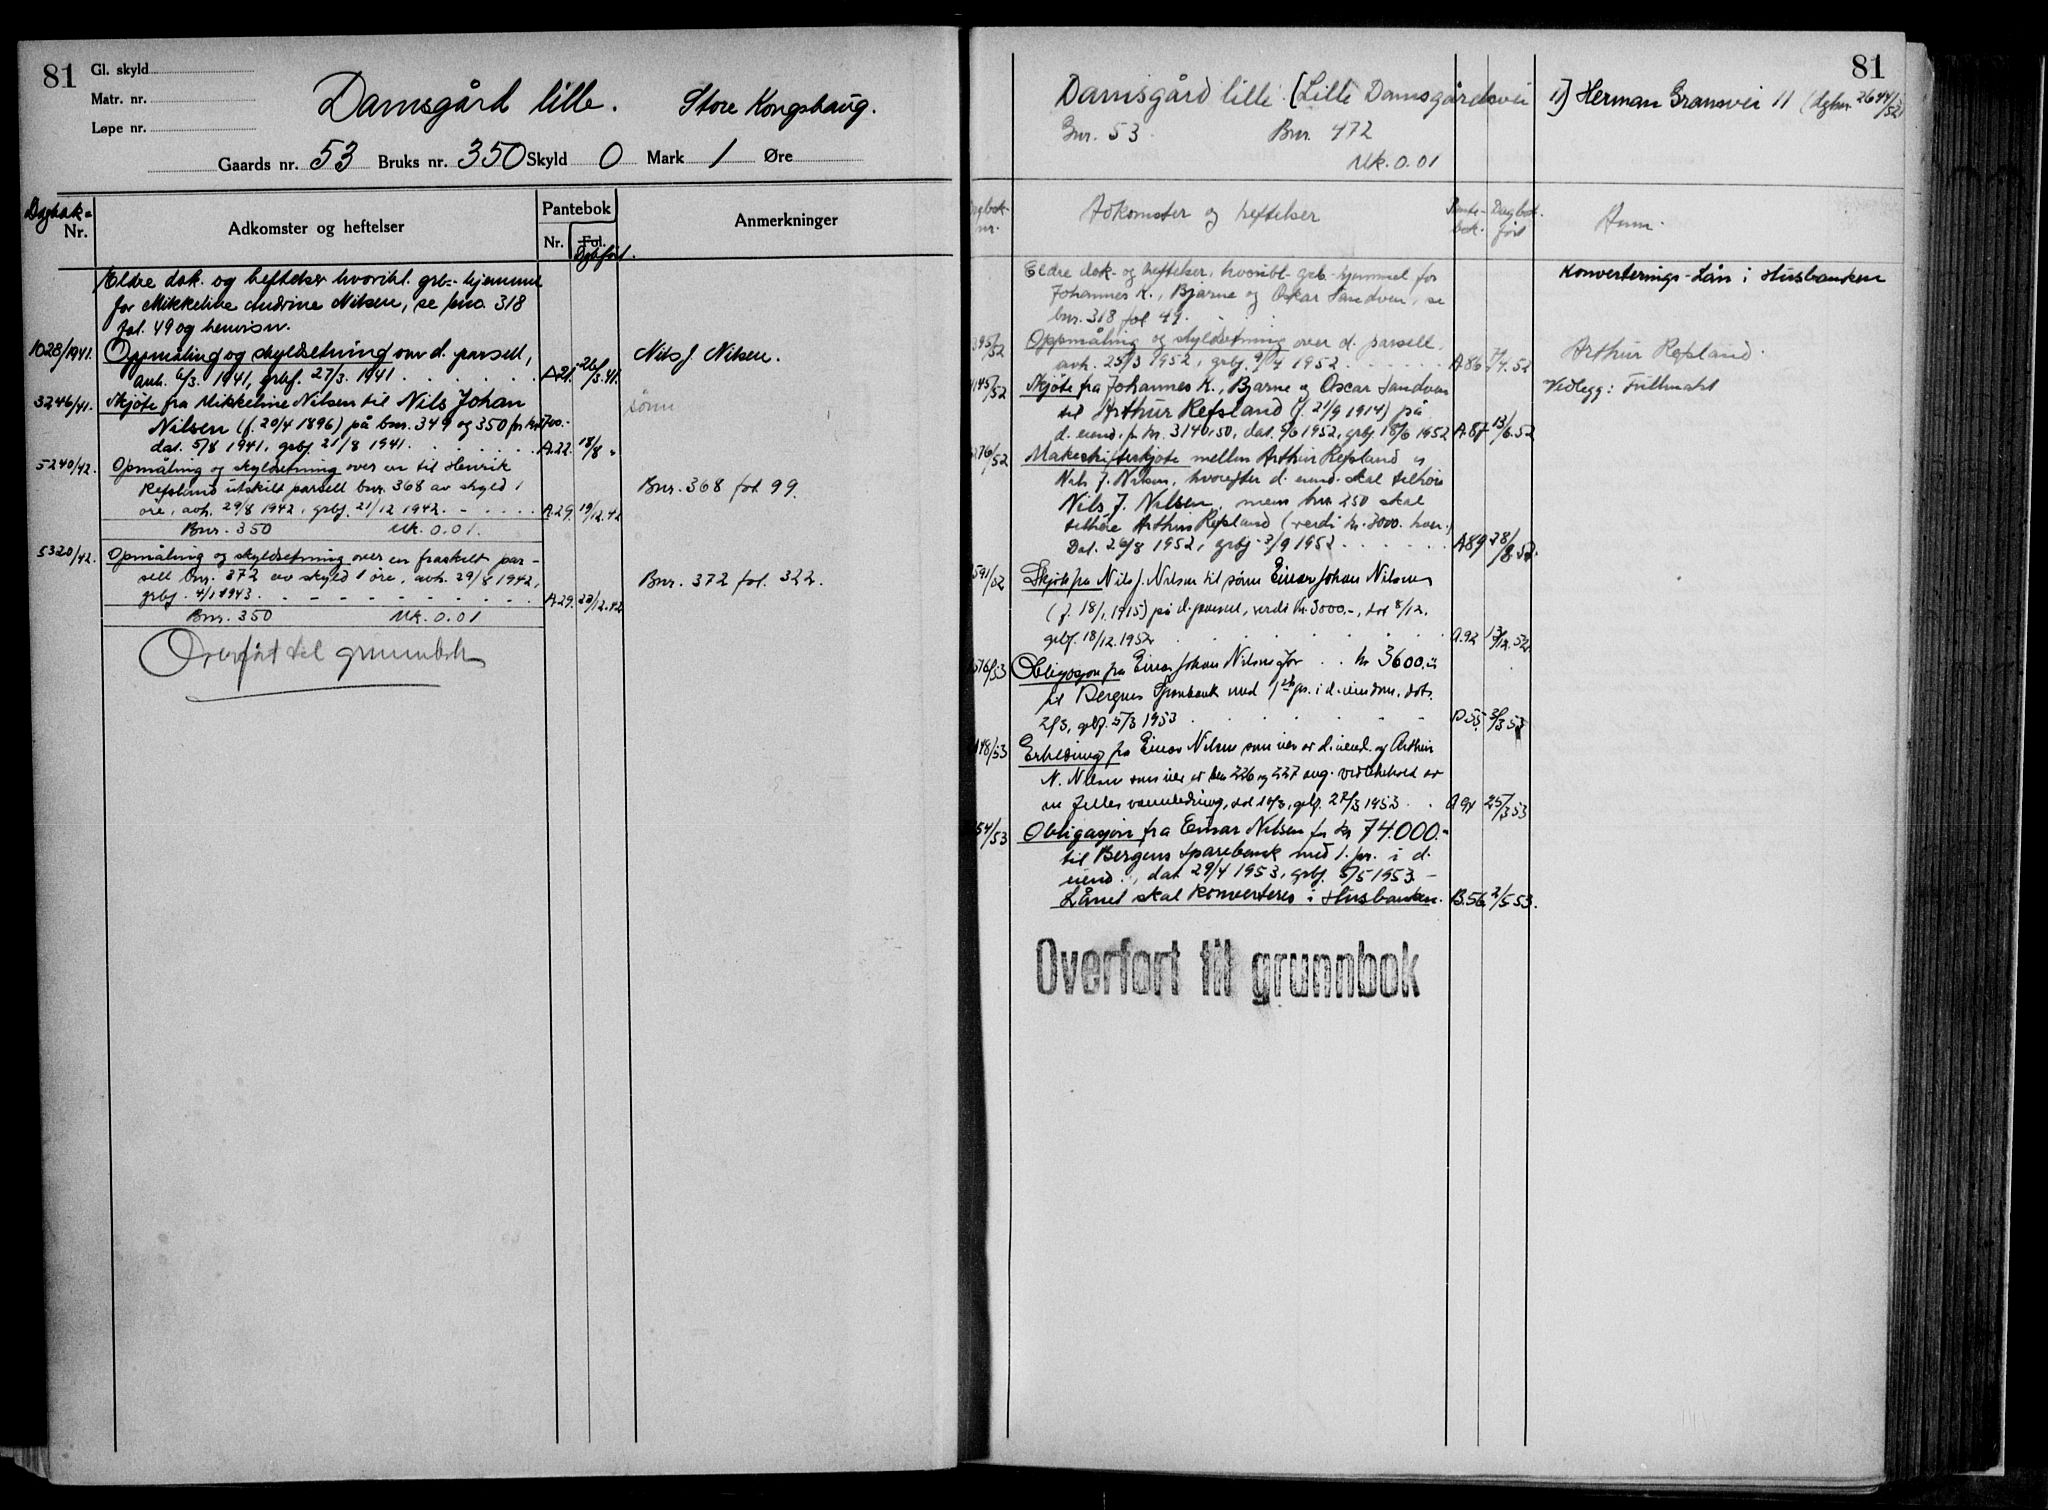 81
Gl. skyld
Matr. nr.
Løpe nr.
Damsgård lille. Store Kongshaug.
Gaards nr. 53 Bruks nr. 350 Skyld 0 Mark 1 Øre
Dagbok-
Nr.
Adkomster og heftelser
Pantebok
Nr.
Fol.
Dgbført.
Anmerkninger
Eldre dok. og heftelser hvoribl. grb.-hjemmel
for Mikkeline Andrine Nilsen, se bno. 318
fol. 49 og henvisn.
1028/1941. Oppmåling og skyldsetning over d. parsell, Nils J. Nilsen.
avh. 6/3. 1941, grbf. 27/3. 1941 A.21. 26/3.41.
3246/41. Skjøte fra Mikkeline Nilsen til Nils Johan sønn
Nilsen (f. 20/4 1896) på bnr. 349 og 350 for kr. 700.-
dat. 5/8 1941, grbf. 21/8 1941. A.22. 18/8 "
5240/42. Opmåling og skyldsetning over en til Henrik
Refsland utskilt parsell bnr. 368 av skyld 1 Bnr. 368 fol. 99.
öre, avh. 29/8 1942, grbf. 21/12 1942. A.29. 19/12.42
Bnr. 350 Mk. 0.01.
5320/42. Opmåling og skyldsetning over en fraskelt par-
sell bnr. 372 av skyld 1 øre, avh. 29/8 1942, Bnr. 372 fol. 322.
grbf. 4/1 1943. A.29. 23/12.42
Bnr. 350 Mk. 0.01
Overført til grunnbok
81
Damsgård lille. [Lille Damsgårdsvei 11] Herman Gransvei 11 (dgbnr. 2644/52)
Gnr. 53. Bnr. 472
Mk. 0.01
Dagbok-
nr.
Adkomster og heftelser
Pante-
bok.
Dagbok.
ført
Anm.
Eldre dok- og heftelser, hvoribl. grb.-hjemmel for Konverterings-Lån i Husbanken
Johannes K., Bjarne og Oskar Sandven, se
bnr. 318 fol 49.
395/52 Oppmåling og skyldsetning over d. parsell. Arthur Refsland.
avh. 25/3 1952, grbf. 9/4 1952. A 86 7/4.52
145/52 Skjøte fra Johannes K., Bjarne og Oscar Sandven Vedlegg: Fullmakt
til Arthur Refsland (f. 21/9 1914) på
d. eiend. for kr. 3140,50, dat. 5/6 1952, grbf 18/6 1952 A.87 13/6.52
276/52 Makeskifteskjøte mellem Arthur Refsland og
Nils J. Nilsen, hvorefter d. eiend. skal tilhøre
Nils J. Nilsen, mens bnr. 350 skal
tilhøre Arthur Refsland (verdi kr. 3000. hver.)
Dat. 26/8 1952, grbf. 2/9 1952. A89 28/8.52.
591/52 Skjøte fra Nils J. Nilsen til sønn Einar Johan Nilsen
(f. 18/1 1915) på d. parsel, verdi kr. 3000.-, dat 8/12.
grbf. 18/12.1952 A.92 13/12.52.
576/53 Obligasjon fra Einar Johan Nilsen for kr 3600.-
til Bergens Sparebank med 1ste pr. i d. eiendom. dat.
2/3, grbf. 5/3 1953 B 55 3/3 53
148/53 Erklæring fra Einar Nilsen som eier av d. eiend. og Arthur
N. Nilsen som eier av bnr 226 og 227 ang. vedlikehold av
en felles vannledning, dat 14/3, grbf. 27/3 1953. A 94 25/3 53
54/53 Obligasjon fra Einar Nilsen for kr 74.000.-
til Bergens Sparebank med 1. pr. i d.
eiend., dat 29/4 1953, grbf. 5/5 1953 -
Lånet skal konverteres i Husbanken. B.56. 2/5.53.
Overført til grunnbok